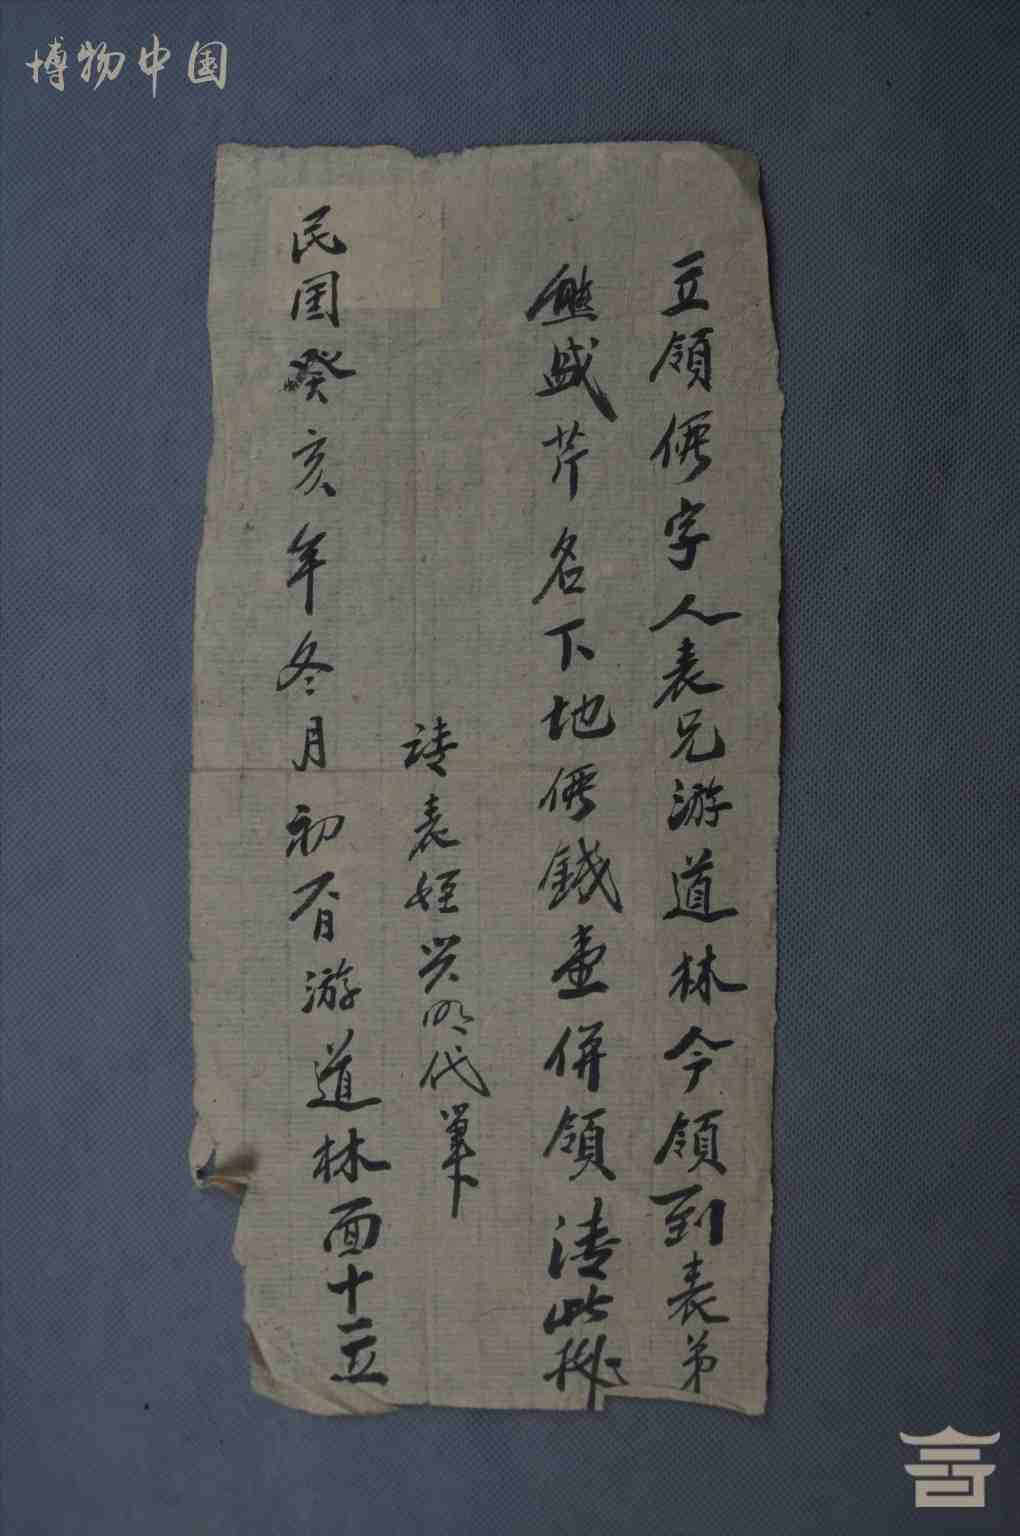 博物中国
立領價字人表兄游道林今領到表弟
熊盛芹名下地價錢壹併領清此據
請表姪兴明代筆
民国癸亥年冬月初百游道林面十立